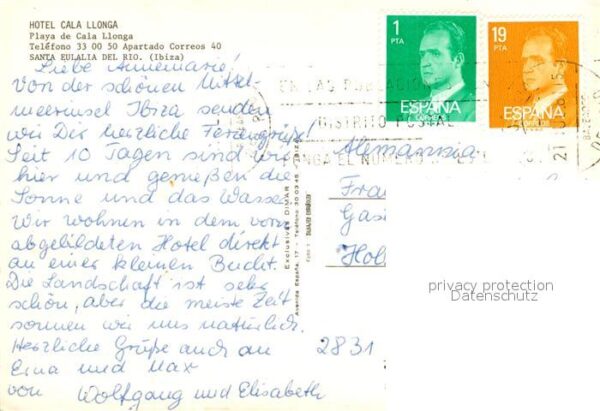 HOTEL CALA LLONGA
Playa de Cala Llonga
Teléfono 33 00 50 Apartado Correos 40
SANTA EULALIA DEL RIO. (Ibiza)
Liebe Annemarie!
Von der schönen Mittel-
meerinsel Ibiza senden
wir Dir herzliche Feriengrüße!
Seit 10 Tagen sind wir
hier und genießen die
Sonne und das Wasser.
Wir wohnen in dem vorn
abgebildeten Hotel direkt
an einer kleinen Bucht.
Die Landschaft ist sehr
schön, aber die meiste Zeit
sonnen wir uns natürlich.
Herzliche Grüße auch an
Erna und Max
von Wolfgang und Elisabeth
Exclusivas DIMAR
Avenida España, 17 - Teléfono 30 03 45 - IBIZA
1
PTA
ESPAÑA
CORREOS
19
PTA
ESPAÑA
CORREOS
DISTRITO POSTAL
EL NUMERO
21
Alemania
Frau
Gas
Hol
2831
privacy protection
Datenschutz